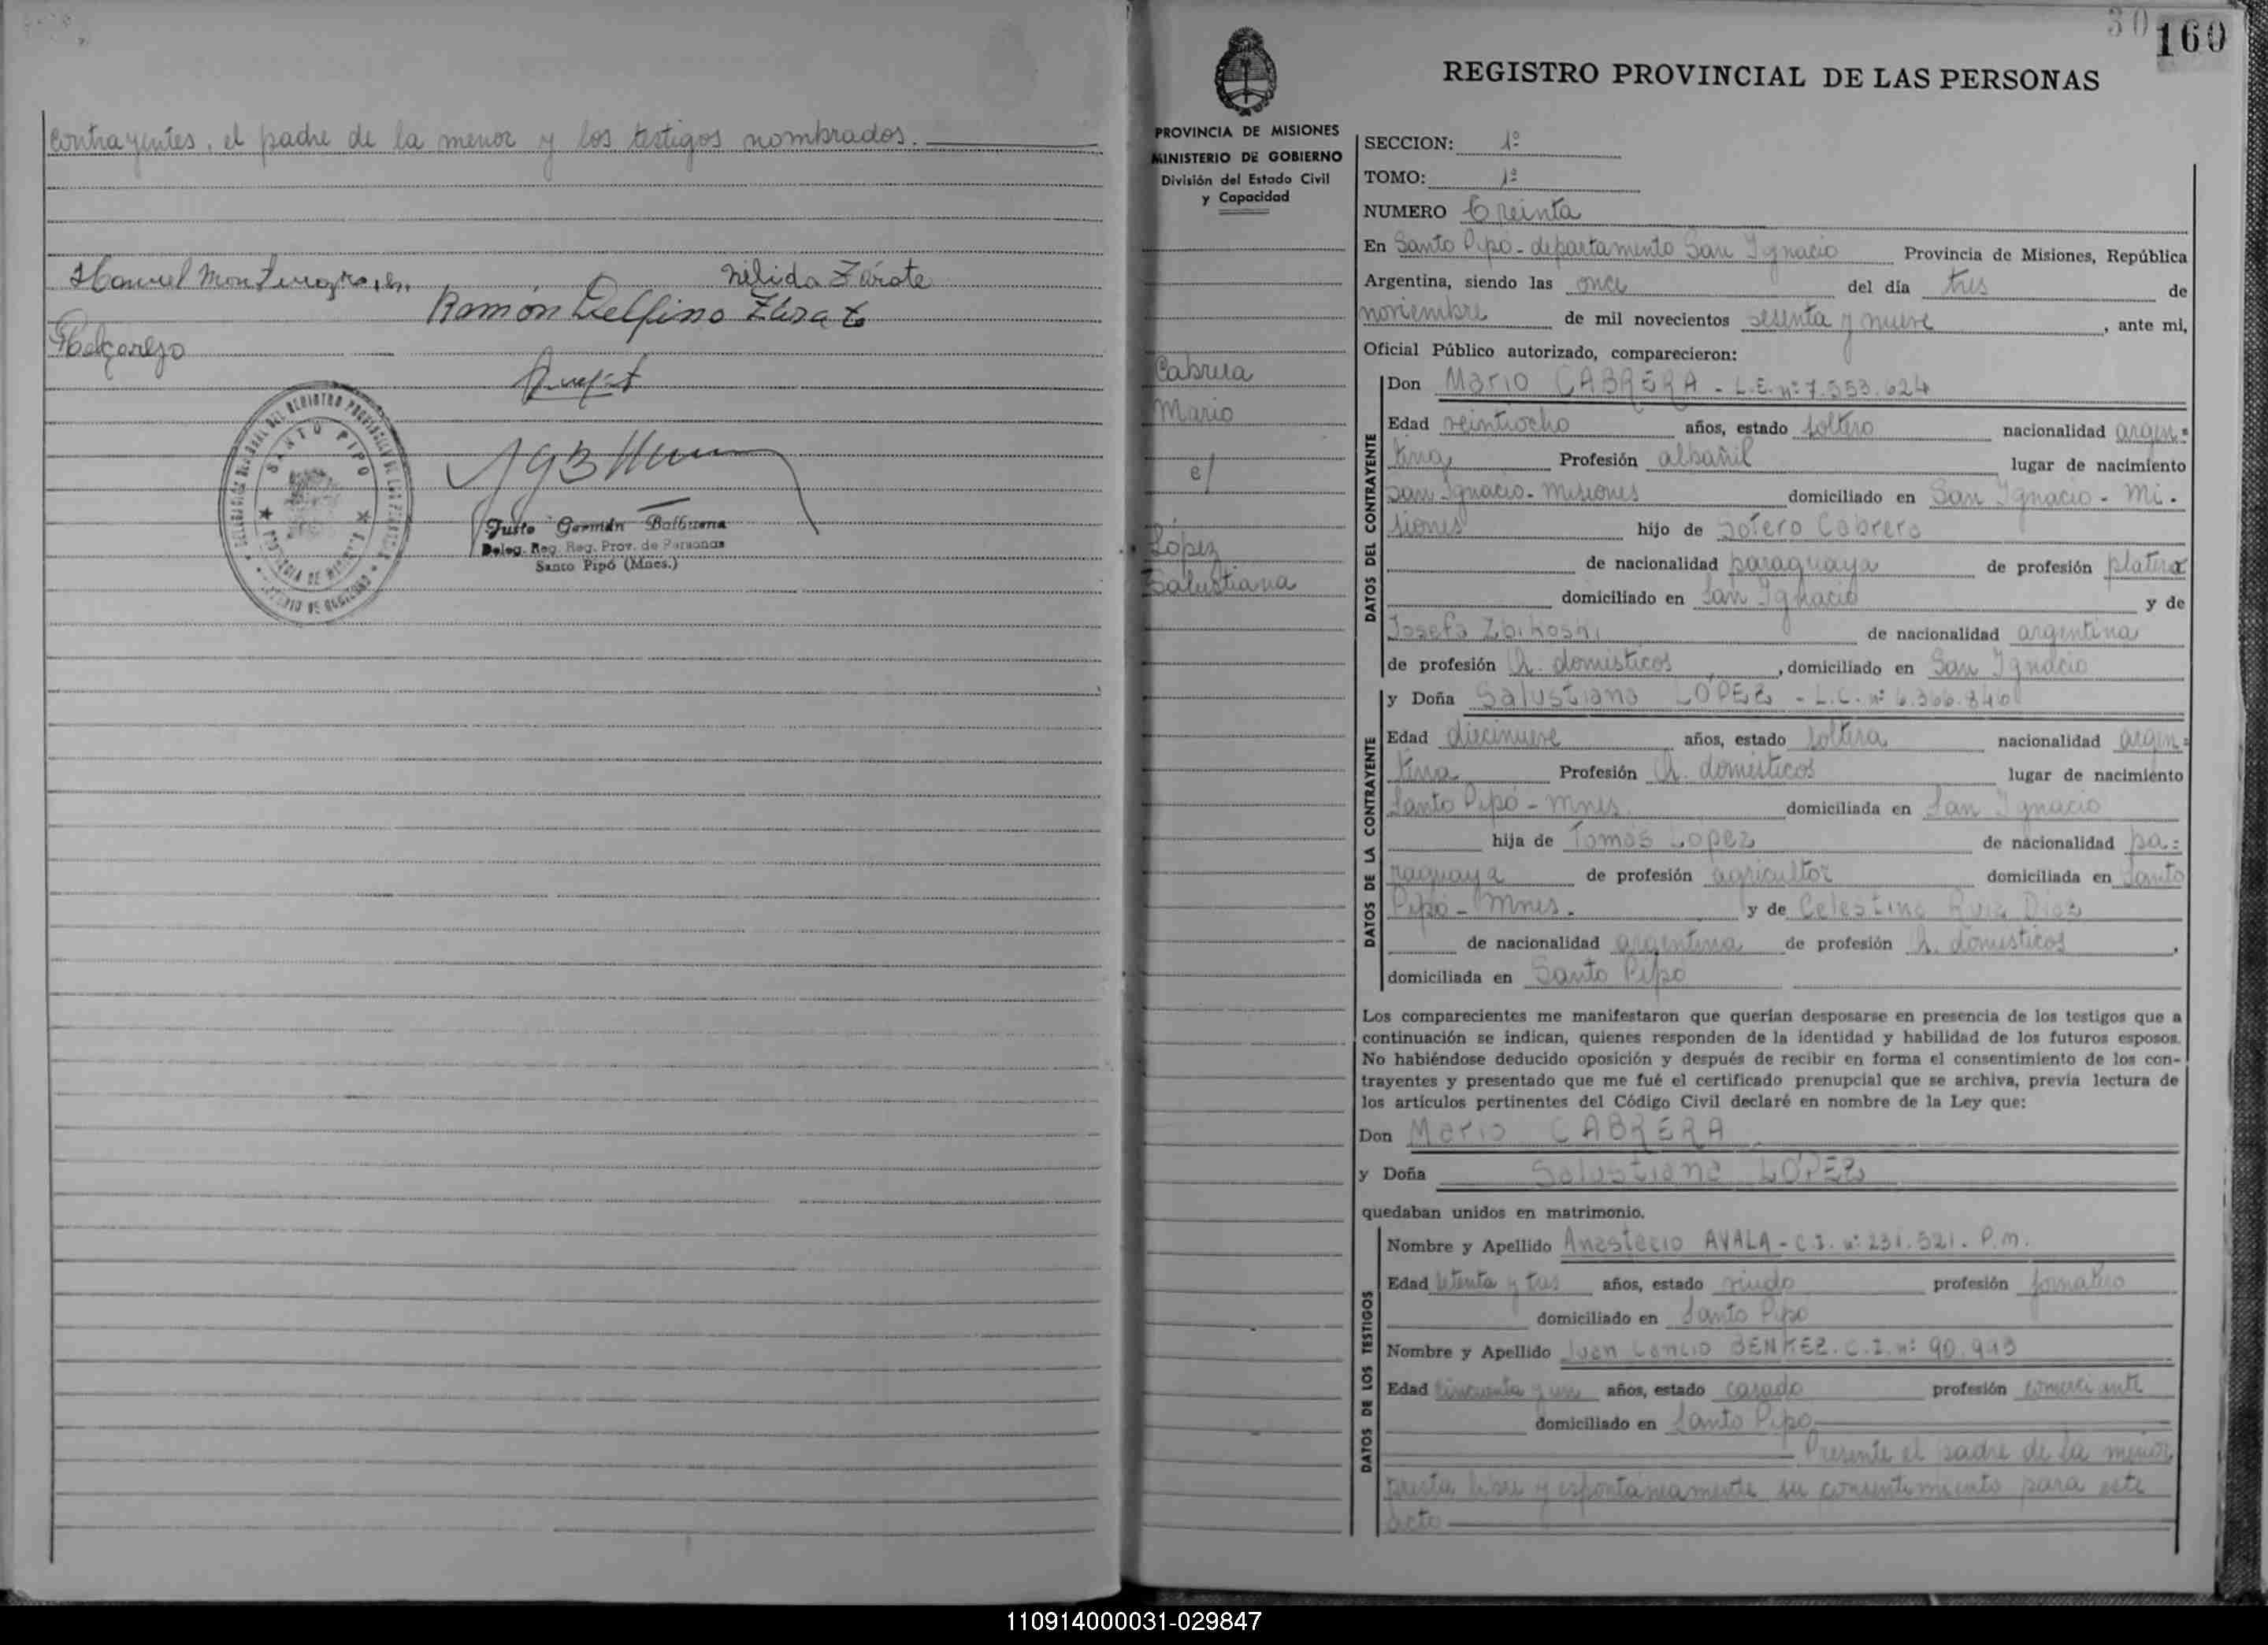 contrayentes, el padre de la menor y los testigos nombrados.
Manuel Montenegro, h.
Nélida Zárate
Ramón Delfino Zárate
Melgarejo
SANTO PIPO
Justo Germán Balbuena
Deleg. Reg. Reg. Prov. de Personas
Santo Pipó (Mnes.)
30
160
REGISTRO PROVINCIAL DE LAS PERSONAS
PROVINCIA DE MISIONES
MINISTERIO DE GOBIERNO
División del Estado Civil
y Capacidad
Cabrera
Mario
c/
López
Salustiana
SECCION: 1º
TOMO: 1º
NUMERO Treinta
En Santo Pipó - departamento San Ignacio Provincia de Misiones, República
Argentina, siendo las once del día tres de
noviembre de mil novecientos sesenta y nueve, ante mi,
Oficial Público autorizado, comparecieron:
DATOS DEL CONTRAYENTE
Don Mario CABRERA - L.E. nº 7.553.624
Edad veintiocho años, estado soltero nacionalidad argen=
tina, Profesión albañil lugar de nacimiento
San Ignacio - Misiones domiciliado en San Ignacio - Mi-
siones hijo de Sotero Cabrera
de nacionalidad paraguaya de profesión platero
domiciliado en San Ignacio y de
Josefa Zbikoski de nacionalidad argentina
de profesión Q. domésticos, domiciliado en San Ignacio
DATOS DE LA CONTRAYENTE
y Doña Salustiana LÓPEZ - L.C. nº 6.366.840
Edad diecinueve años, estado soltera nacionalidad argen=
tina Profesión Q. domésticos lugar de nacimiento
Santo Pipó - Mnes. domiciliada en San Ignacio
hija de Tomás López de nacionalidad pa=
raguaya de profesión agricultor domiciliada en Santo
Pipó - Mnes. y de Celestina Ruiz Diaz
de nacionalidad argentina de profesión Q. domésticos,
domiciliada en Santo Pipó
Los comparecientes me manifestaron que querían desposarse en presencia de los testigos que a
continuación se indican, quienes responden de la identidad y habilidad de los futuros esposos.
No habiéndose deducido oposición y después de recibir en forma el consentimiento de los con-
trayentes y presentado que me fué el certificado prenupcial que se archiva, previa lectura de
los artículos pertinentes del Código Civil declaré en nombre de la Ley que:
Don Mario CABRERA
y Doña Salustiana LÓPEZ
quedaban unidos en matrimonio.
DATOS DE LOS TESTIGOS
Nombre y Apellido Anastacio AYALA - C.I. nº 231.521. P.M.
Edad setenta y tres años, estado viudo profesión jornalero
domiciliado en Santo Pipó
Nombre y Apellido Juan Cancio BENITEZ. C.I. nº 90.993
Edad cincuenta y un años, estado casado profesión comerciante
domiciliado en Santo Pipó
Presente el padre de la menor
presta libre y espontáneamente su consentimiento para este
acto
110914000031-029847